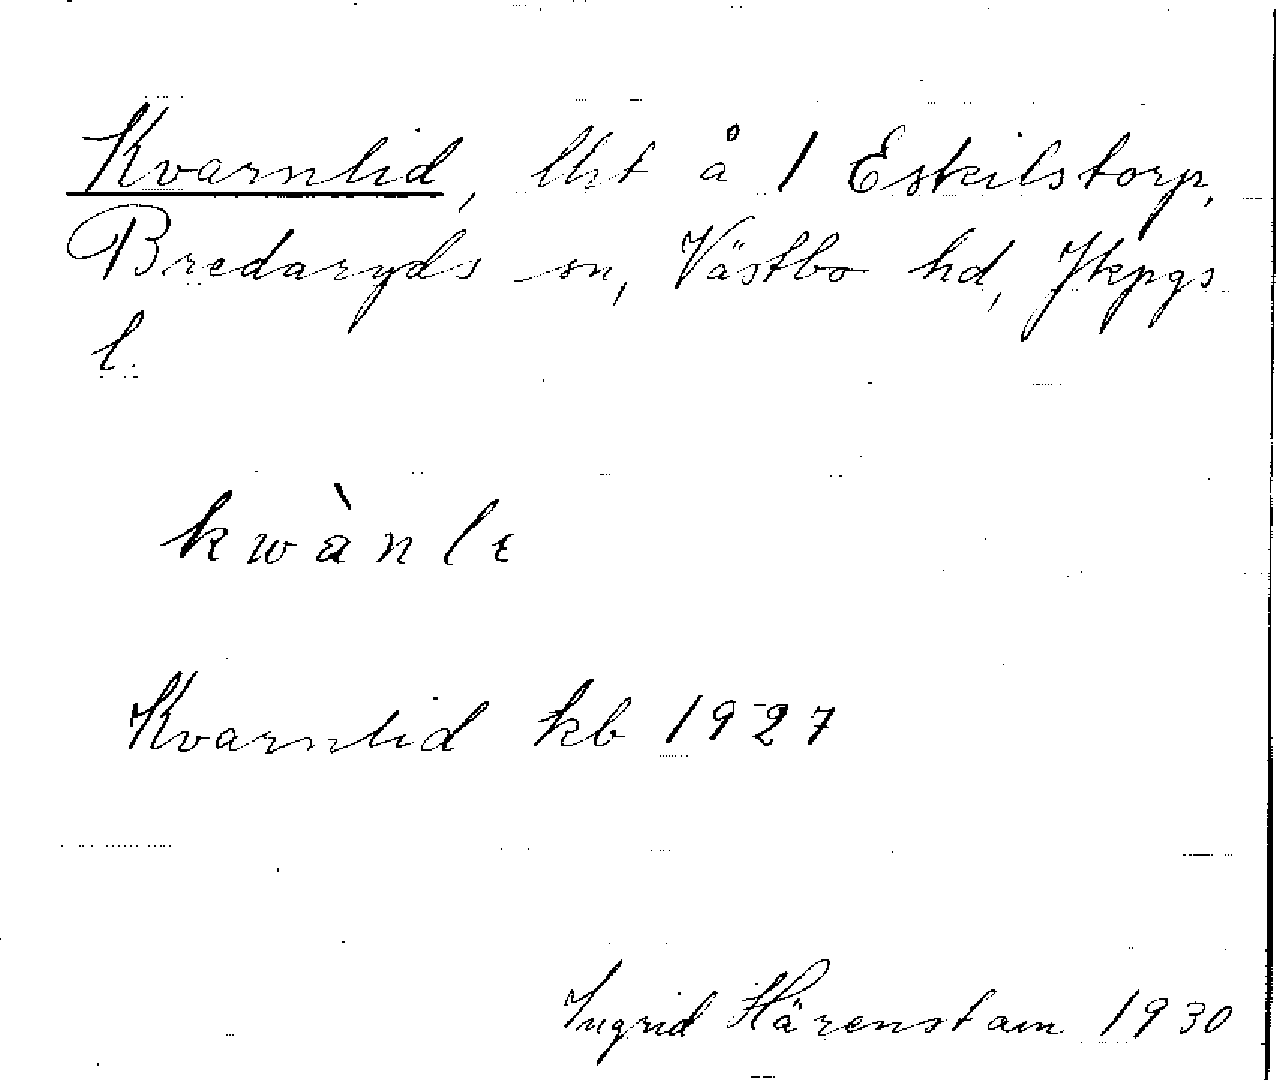 Kvarnlid, lht å 1 Eskilstorp,
Bredaryds sn, Västbo hd, Jkpgs
l.
kwànlɩ
Kvarnlid kb 1927
Ingrid Härenstam 1930